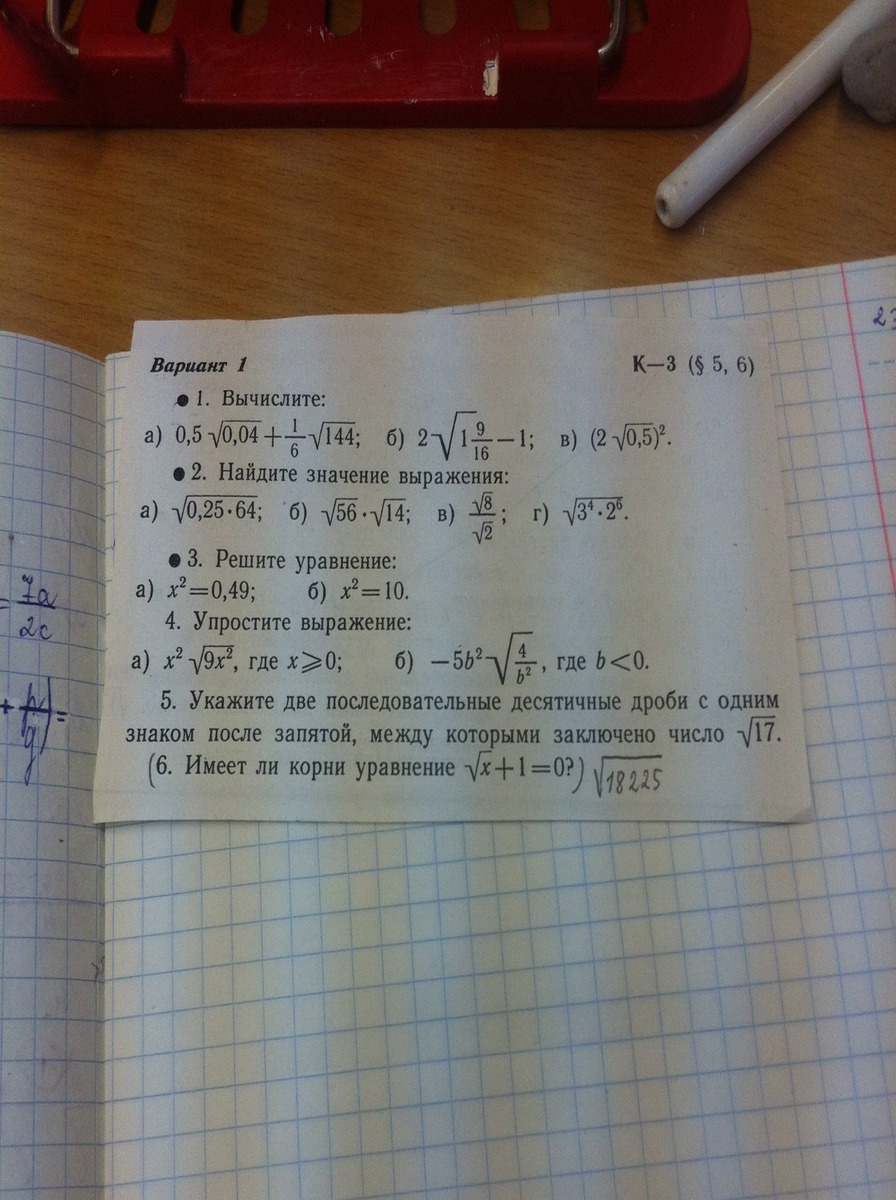 Вариант 1 К—3 (§ 5, 6)
● 1. Вычислите:
а) 0,5 √0,04 + 1/6 √144; б) 2√(1 9/16) − 1; в) (2 √0,5)².
● 2. Найдите значение выражения:
а) √(0,25·64); б) √56 · √14; в) √8/√2; г) √(3⁴·2⁶).
● 3. Решите уравнение:
а) x² = 0,49; б) x² = 10.
4. Упростите выражение:
а) x² √(9x²), где x ⩾ 0; б) −5b² √(4/b²), где b < 0.
5. Укажите две последовательные десятичные дроби с одним
знаком после запятой, между которыми заключено число √17.
(6. Имеет ли корни уравнение √x + 1 = 0?) √18225
= 7a/2c
23